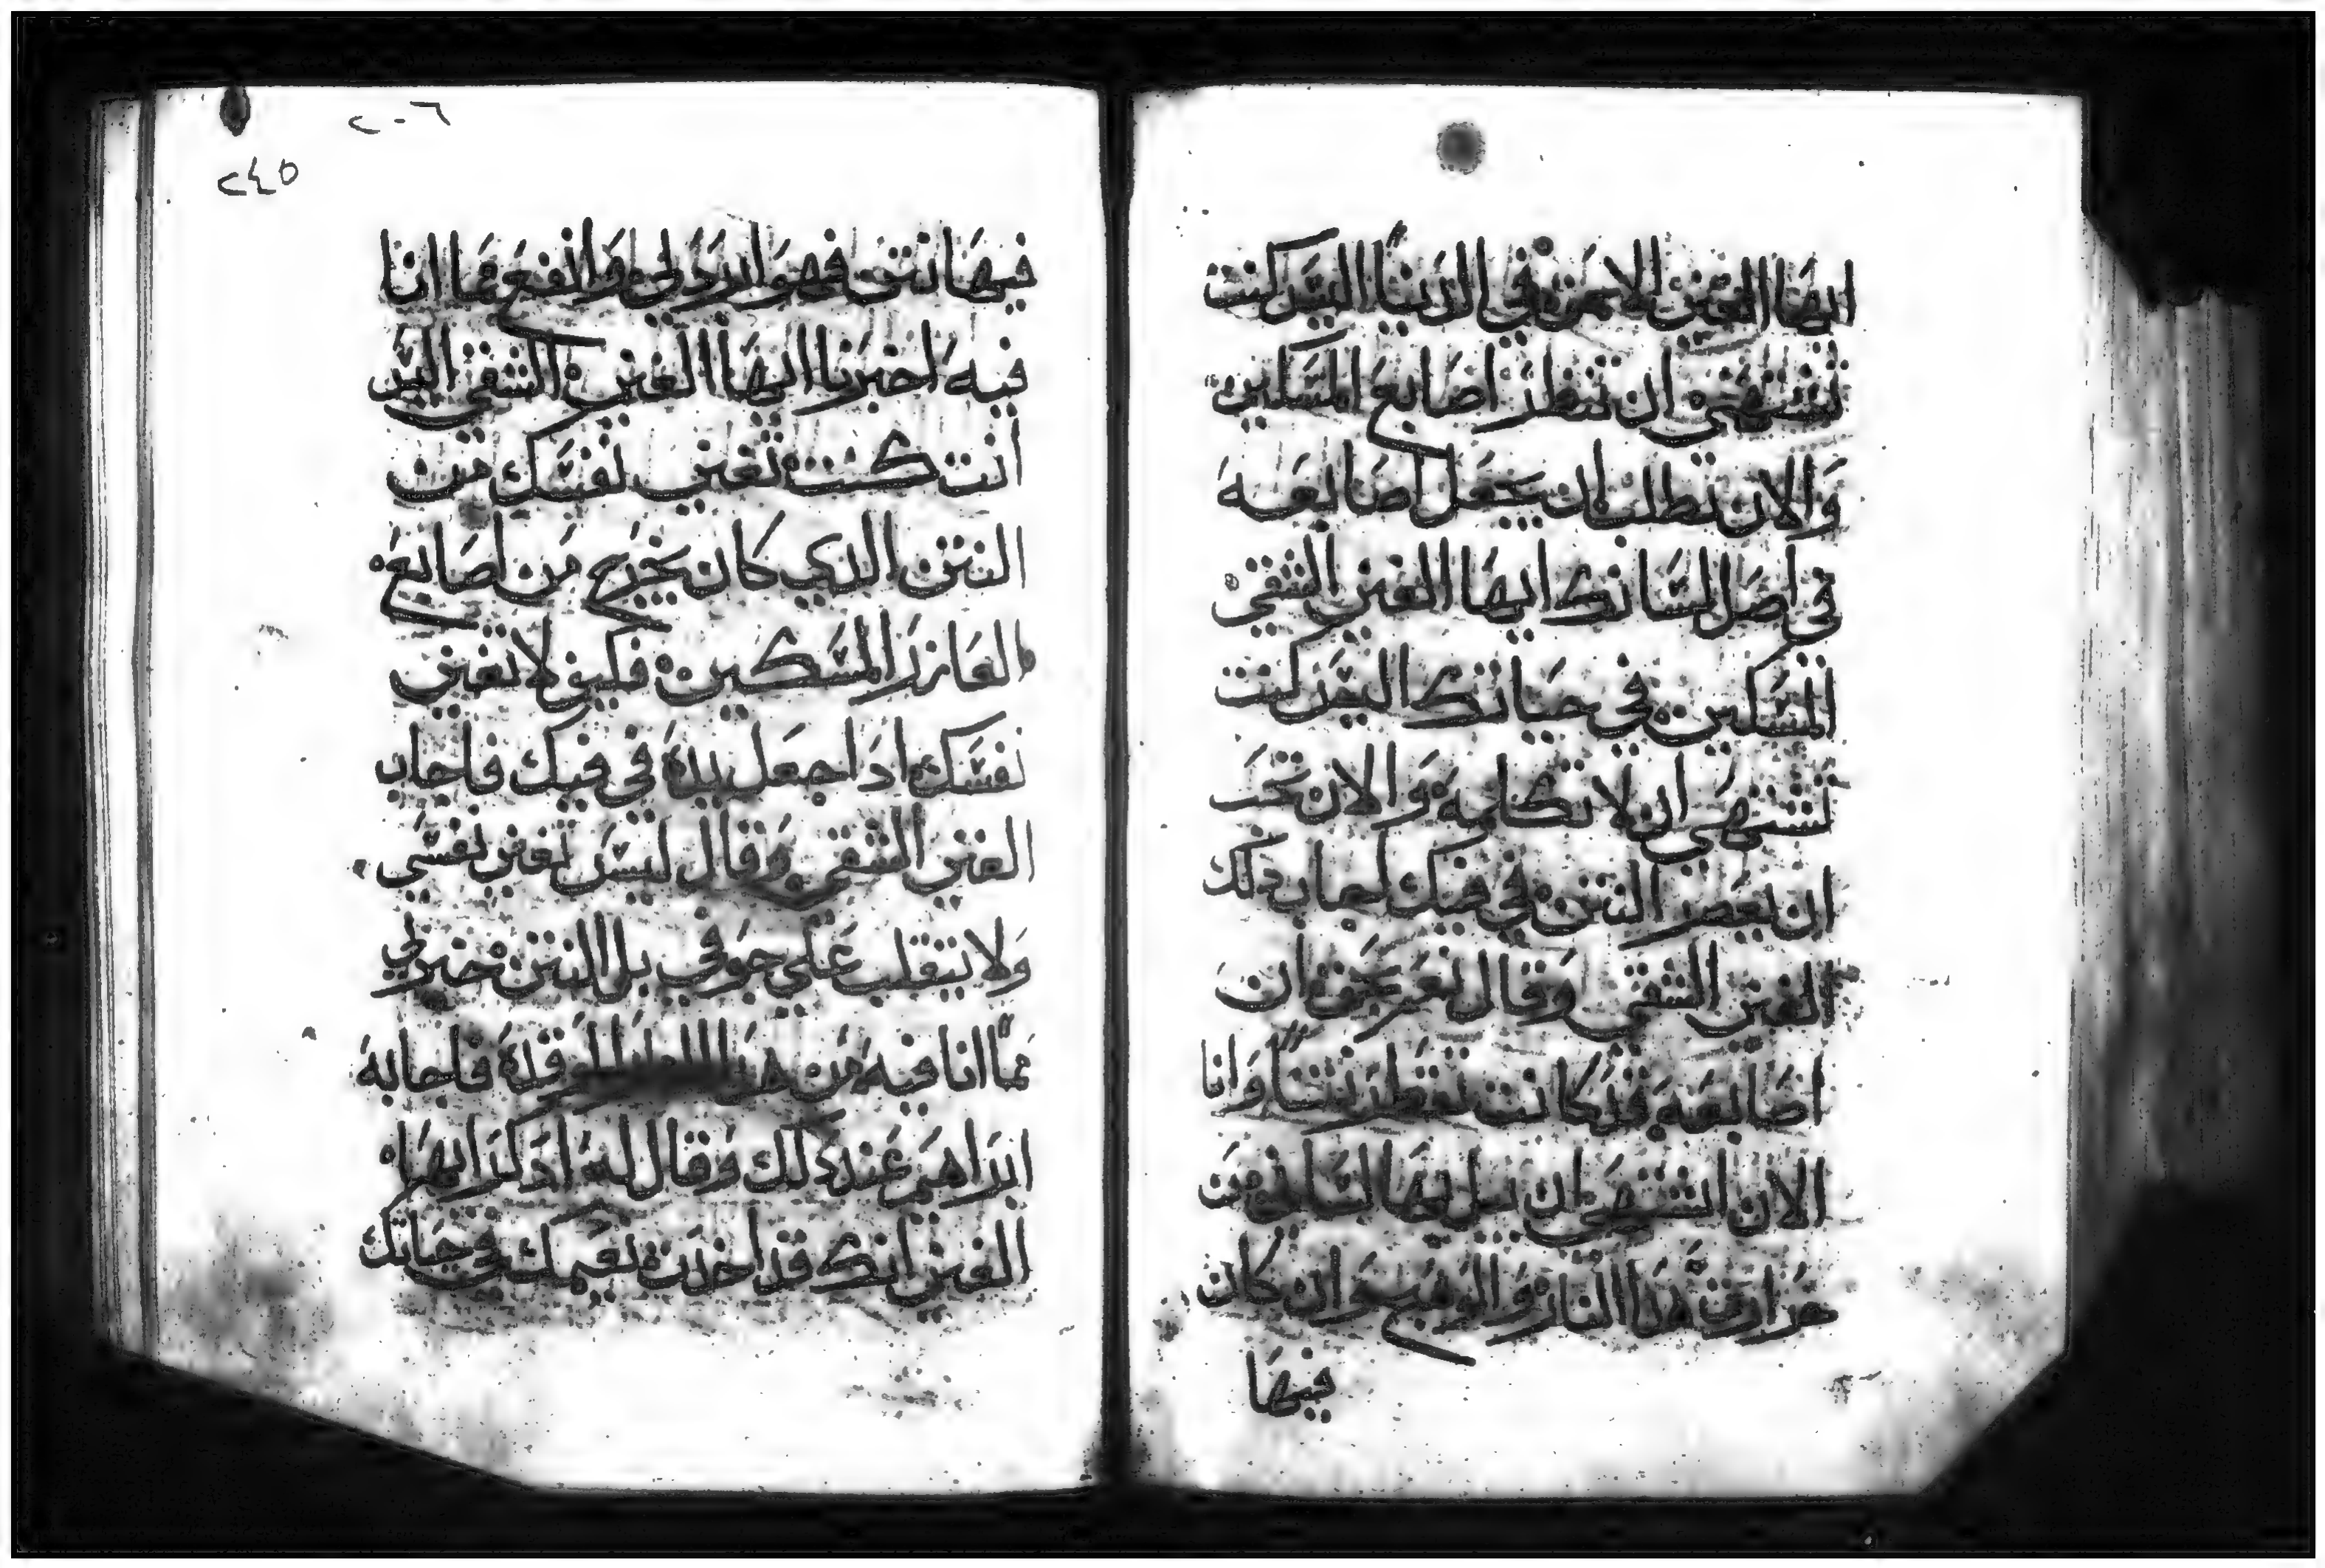 ايها الغني الاحمق في الدنيا اليس كنت
تشتهي ان تنظر اصابع المسكين
والان تطلب ان يجعل اصابعه
في اصل لسانك ايها الغني الشقي
المسكين في حياتك اليس كنت
تشتهي ان لا تكلمه والان تحب
ان يعصر النتن في فيك اجاب ذلك
الغني الشقي وقال نعم بحق ان
اصابعه قد كانت تقطر نتنا وانا
الان اشتهي ان يبل بها لساني من
حرارة هذا النار والوهيج وان كان
فيها
٢٠٦
٢٤٥
فيها نتن فهو ابرد لي وانفع مما انا
فيه اخبرنا ايها الغني الشقي اليس
انت كنت تغني نفسك من
النتن الذي كان يخرج من اصابع
العازر المسكين فكيف لا تغني
نفسك اذا جعل يده في فيك فاجاب
الغني الشقي وقال ليس تغني نفسي
ولا يتقلب علي جوفي بل النتن خير لي
مما انا فيه من هذا الموقدة فاجابه
ابراهيم عند ذلك وقال له اذكر ايها
الغني انك قد اخذت نعيمك في حياتك